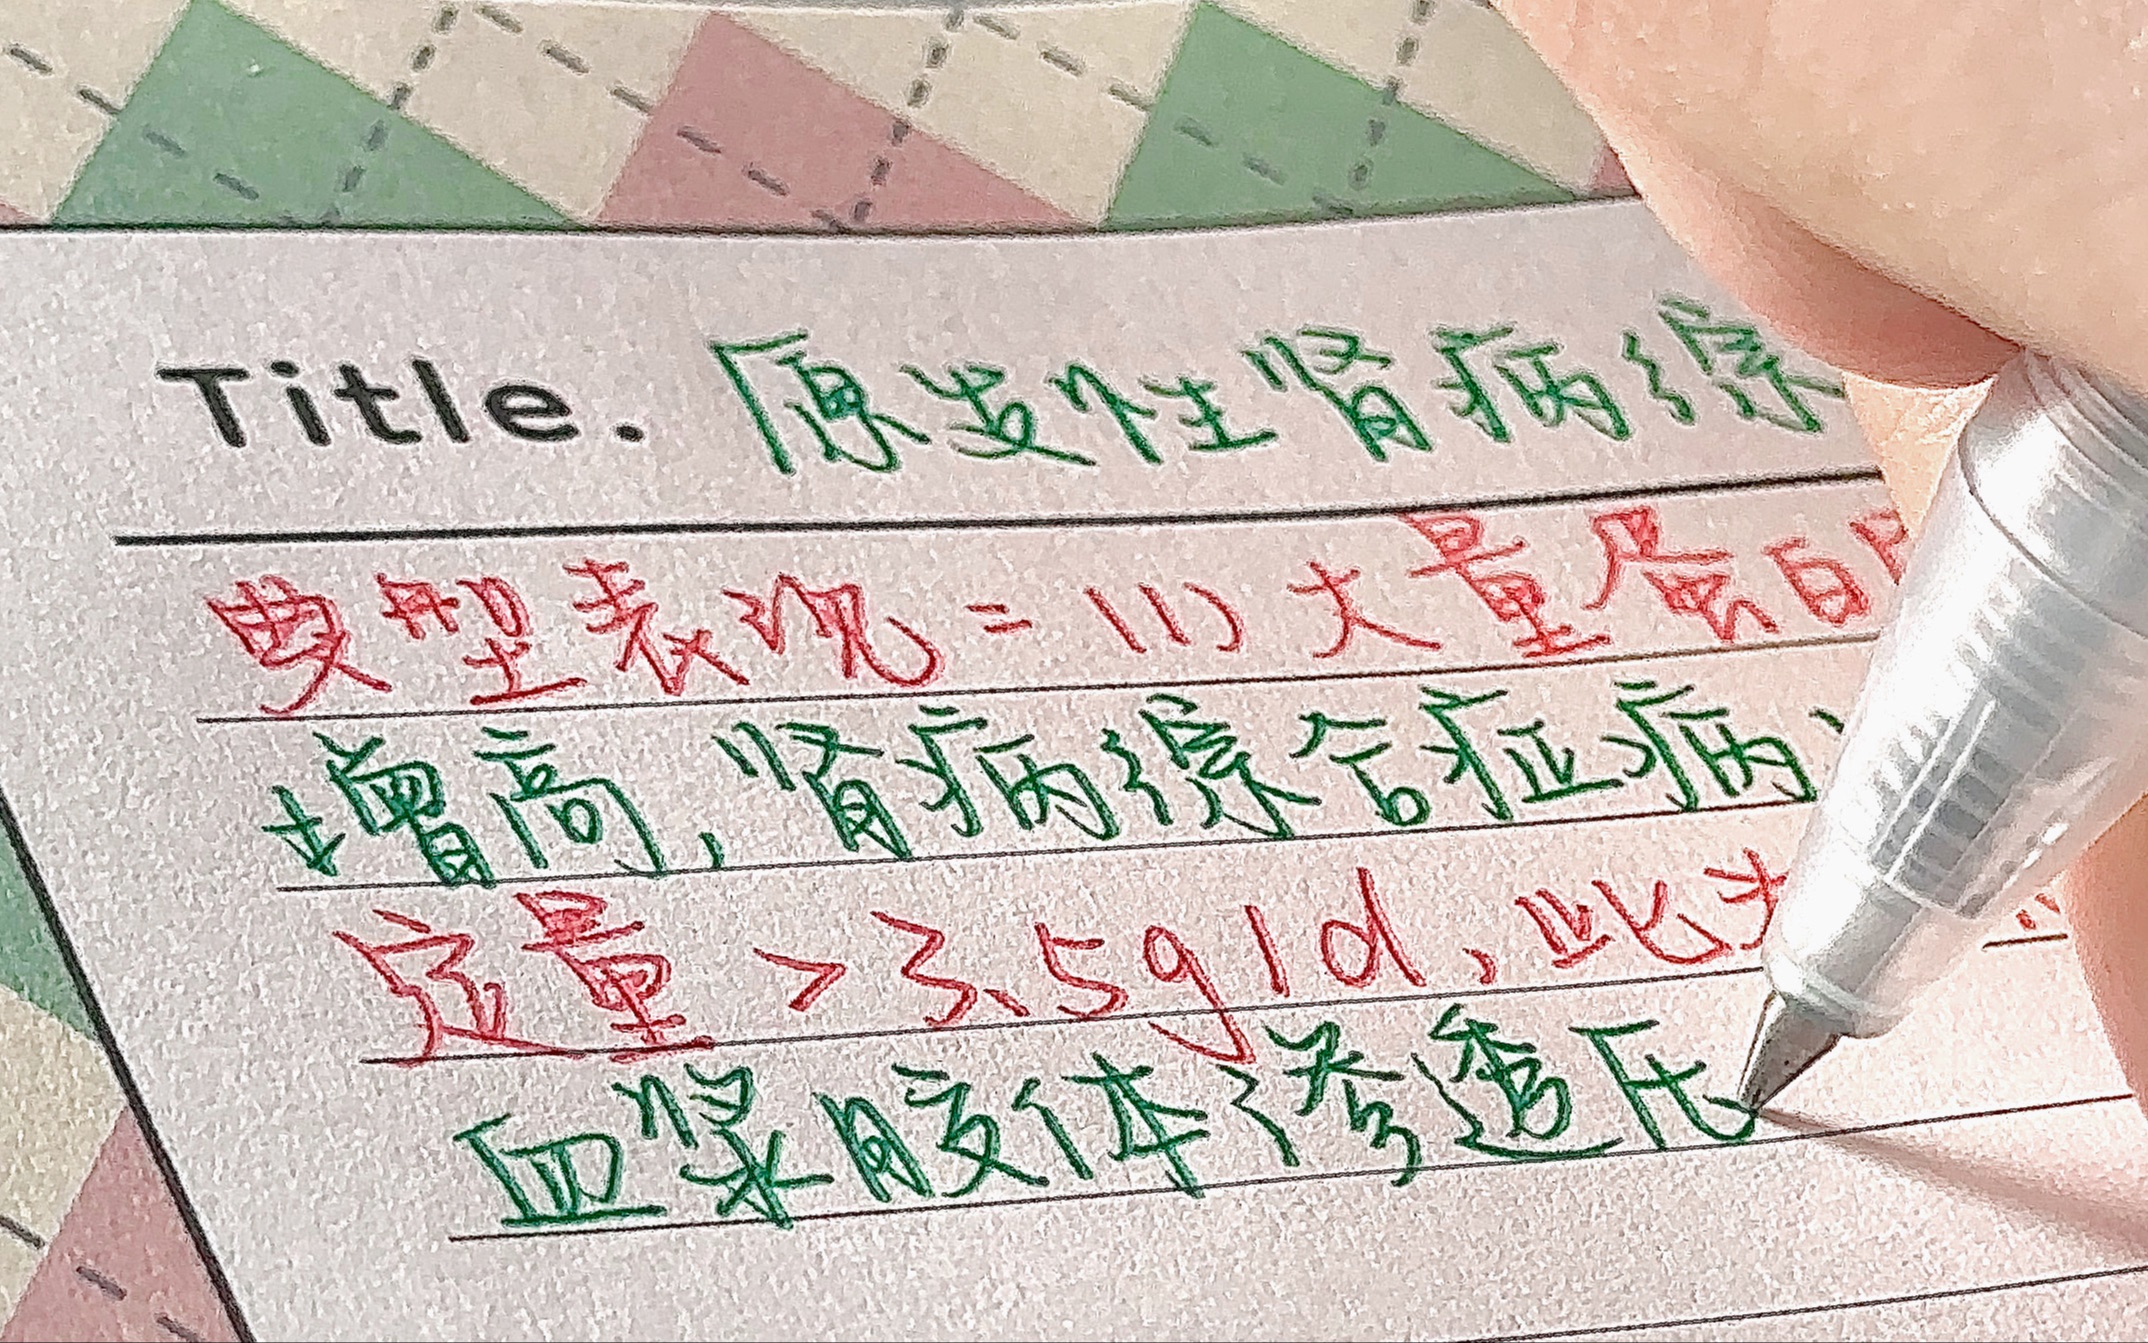 Title. 原发性肾病综
典型表现=(1)大量蛋白
增高,肾病综合症病
定量>3.5g/d,此为
血浆胶体渗透压